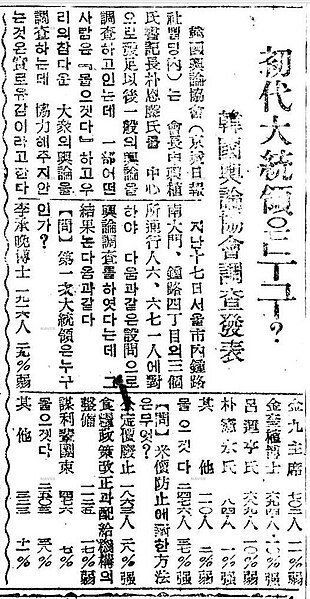 初代大統領은누구?
韓國輿論協會調査發表
韓國輿論協會(京城日報
社삘딍內)는 會長申
氏書記長朴恩 氏를 中心
으로發足以後一般의輿論을
調査하고인는데 一部어떤
사람은『몰으겟다』하고우
리의참다운 大衆의輿論을
調査하는데 協力해주지안
는것은實로유감이라고한다
지난十七日서울市內鍾路
南大門、鍾路四丁目의三個
所通行人六、六七一人에對
하야 다음과갓은設問으로
輿論調査를하엿다는데 그
結果는다음과갓다
【問】第一次大統領은누구
인가?
李承晩博士 一九一六人 二九%弱
金九主席 七〇二人 一一%弱
金奎植博士 六九四人 一〇%强
呂運亨氏 六八九人 一〇%强
朴憲永氏 八四人 一%强
其他 一一〇人 二%弱
몰으겟다 二四七六人 三七%强
【問】米價防止에對한方法
은무엇?
公定價廢止 人 二八%强
食糧政策改正과配給機構의
整備 一一三五 一七%弱
謀利輩團束 七%
몰으겟다 二五〇三 三八%弱
其他 十一%